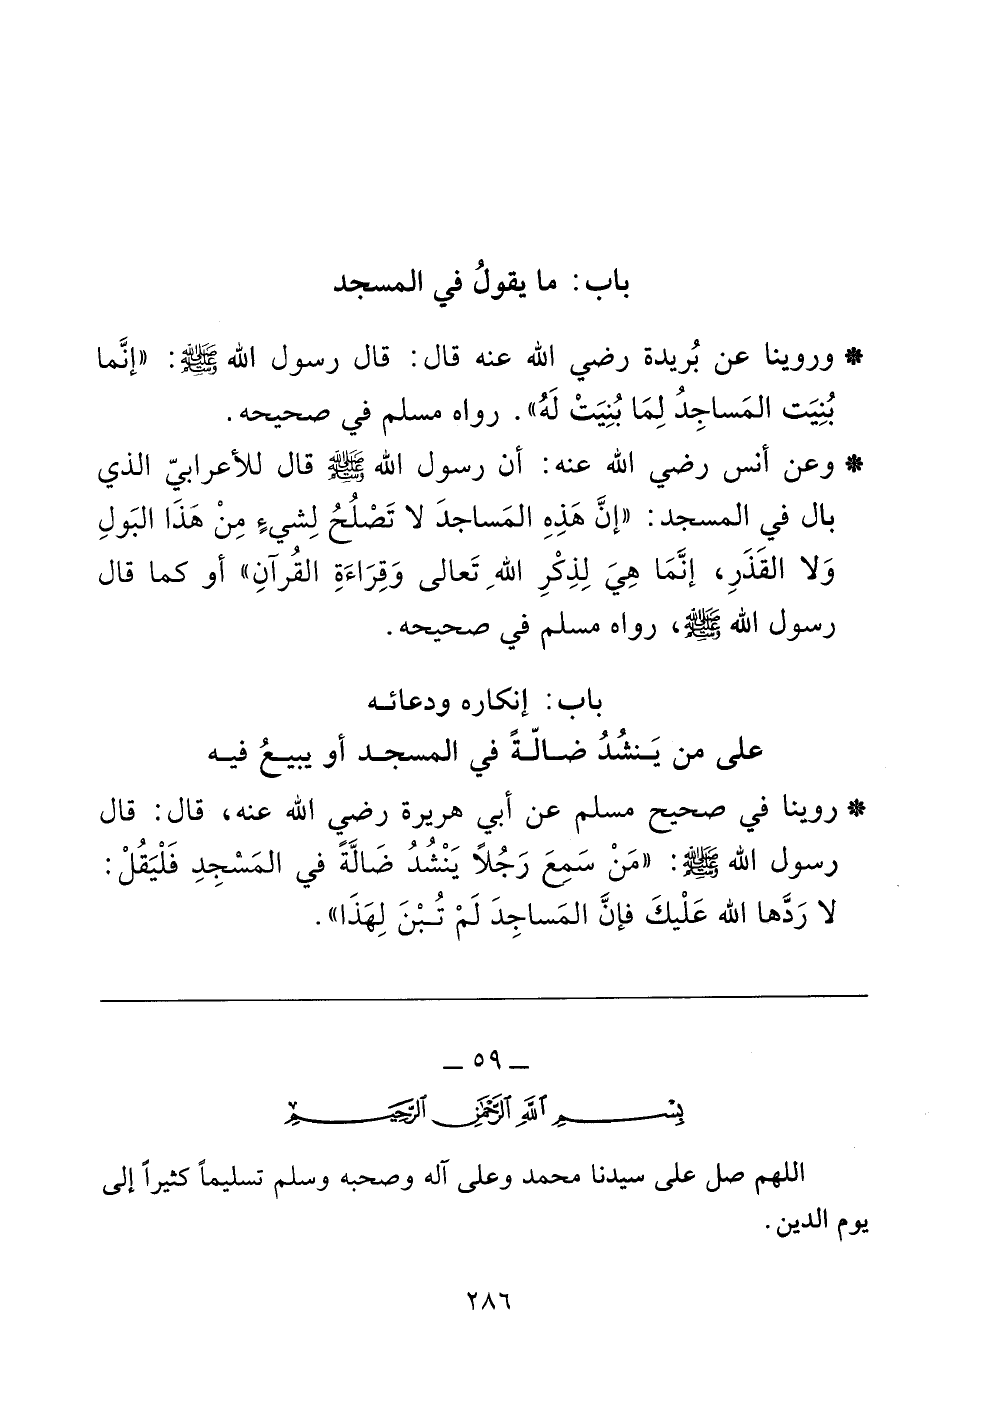 باب: ما يقولُ في المسجد
* وروينا عن بُريدة رضي الله عنه قال: قال رسول الله ﷺ: «إنَّما
بُنِيَت المَساجِدُ لِمَا بُنِيَتْ لَهُ». رواه مسلم في صحيحه.
* وعن أنس رضي الله عنه: أن رسول الله ﷺ قال للأعرابيّ الذي
بال في المسجد: «إنَّ هَذِهِ المَساجدَ لا تَصْلُحُ لِشيءٍ مِنْ هَذَا البَولِ
وَلا القَذَرِ، إنَّمَا هِيَ لِذِكْرِ اللهِ تَعالى وَقِرَاءَةِ القُرآنِ» أو كما قال
رسول الله ﷺ، رواه مسلم في صحيحه.
باب: إنكاره ودعائه
على من يَنشُدُ ضالّةً في المسجد أو يبيعُ فيه
* روينا في صحيح مسلم عن أبي هريرة رضي الله عنه، قال: قال
رسول الله ﷺ: «مَنْ سَمِعَ رَجُلاً يَنْشُدُ ضَالَّةً في المَسْجِدِ فَلْيَقُلْ:
لا رَدَّها الله عَلْيكَ فإنَّ المَساجِدَ لَمْ تُبْنَ لِهَذَا».
ـ ٥٩ ـ
بِسْمِ اللَّهِ الرَّحْمَٰنِ الرَّحِيمِ
اللهم صل على سيدنا محمد وعلى آله وصحبه وسلم تسليماً كثيراً إلى
يوم الدين.
٢٨٦